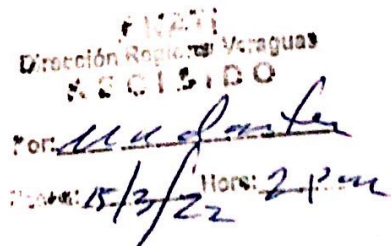 ANATI
Dirección Regional Veraguas
RECIBIDO
Por:
Fecha: 15/3/22 Hora: 2 pm